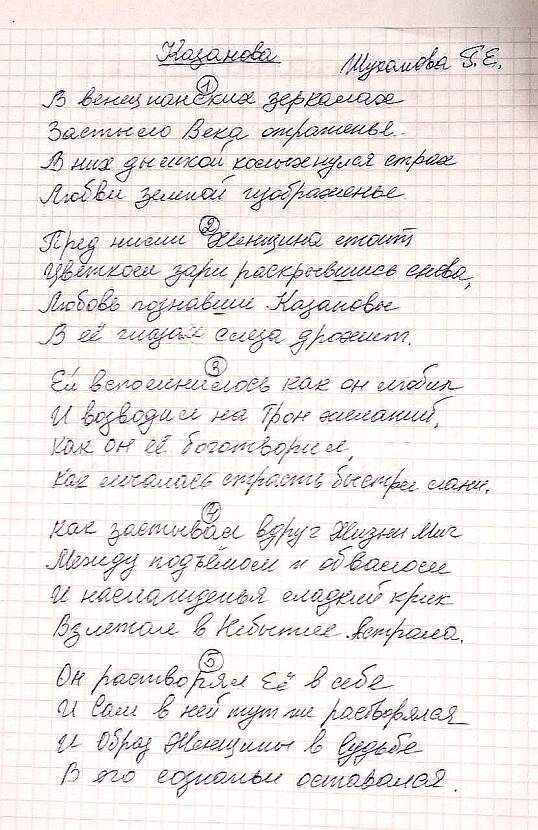 Казанова
Шухамова Г.Е.
1
В венецианских зеркалах
Застыло Века отраженье..
В них дымкой колыхнулся страх
Любви земной изображенье.
2
Пред ними Женщина стоит
Цветком зари раскрывшись снова,
Любовь познавши Казановы
В её глазах слеза дрожит.
3
Ей вспомнилось как он любил
И возводил на Трон желаний,
Как он её боготворил,
Как мчалась страсть быстрей лани.
4
Как застывал вдруг Жизни Миг
Между подъёмом и обвалом
И наслажденья сладкий крик
Взлетал в Небытие Астрала.
5
Он растворял Её в себе
И Сам в ней тут же растворялся
И Образ Женщины в Судьбе
В его сознаньи оставался.